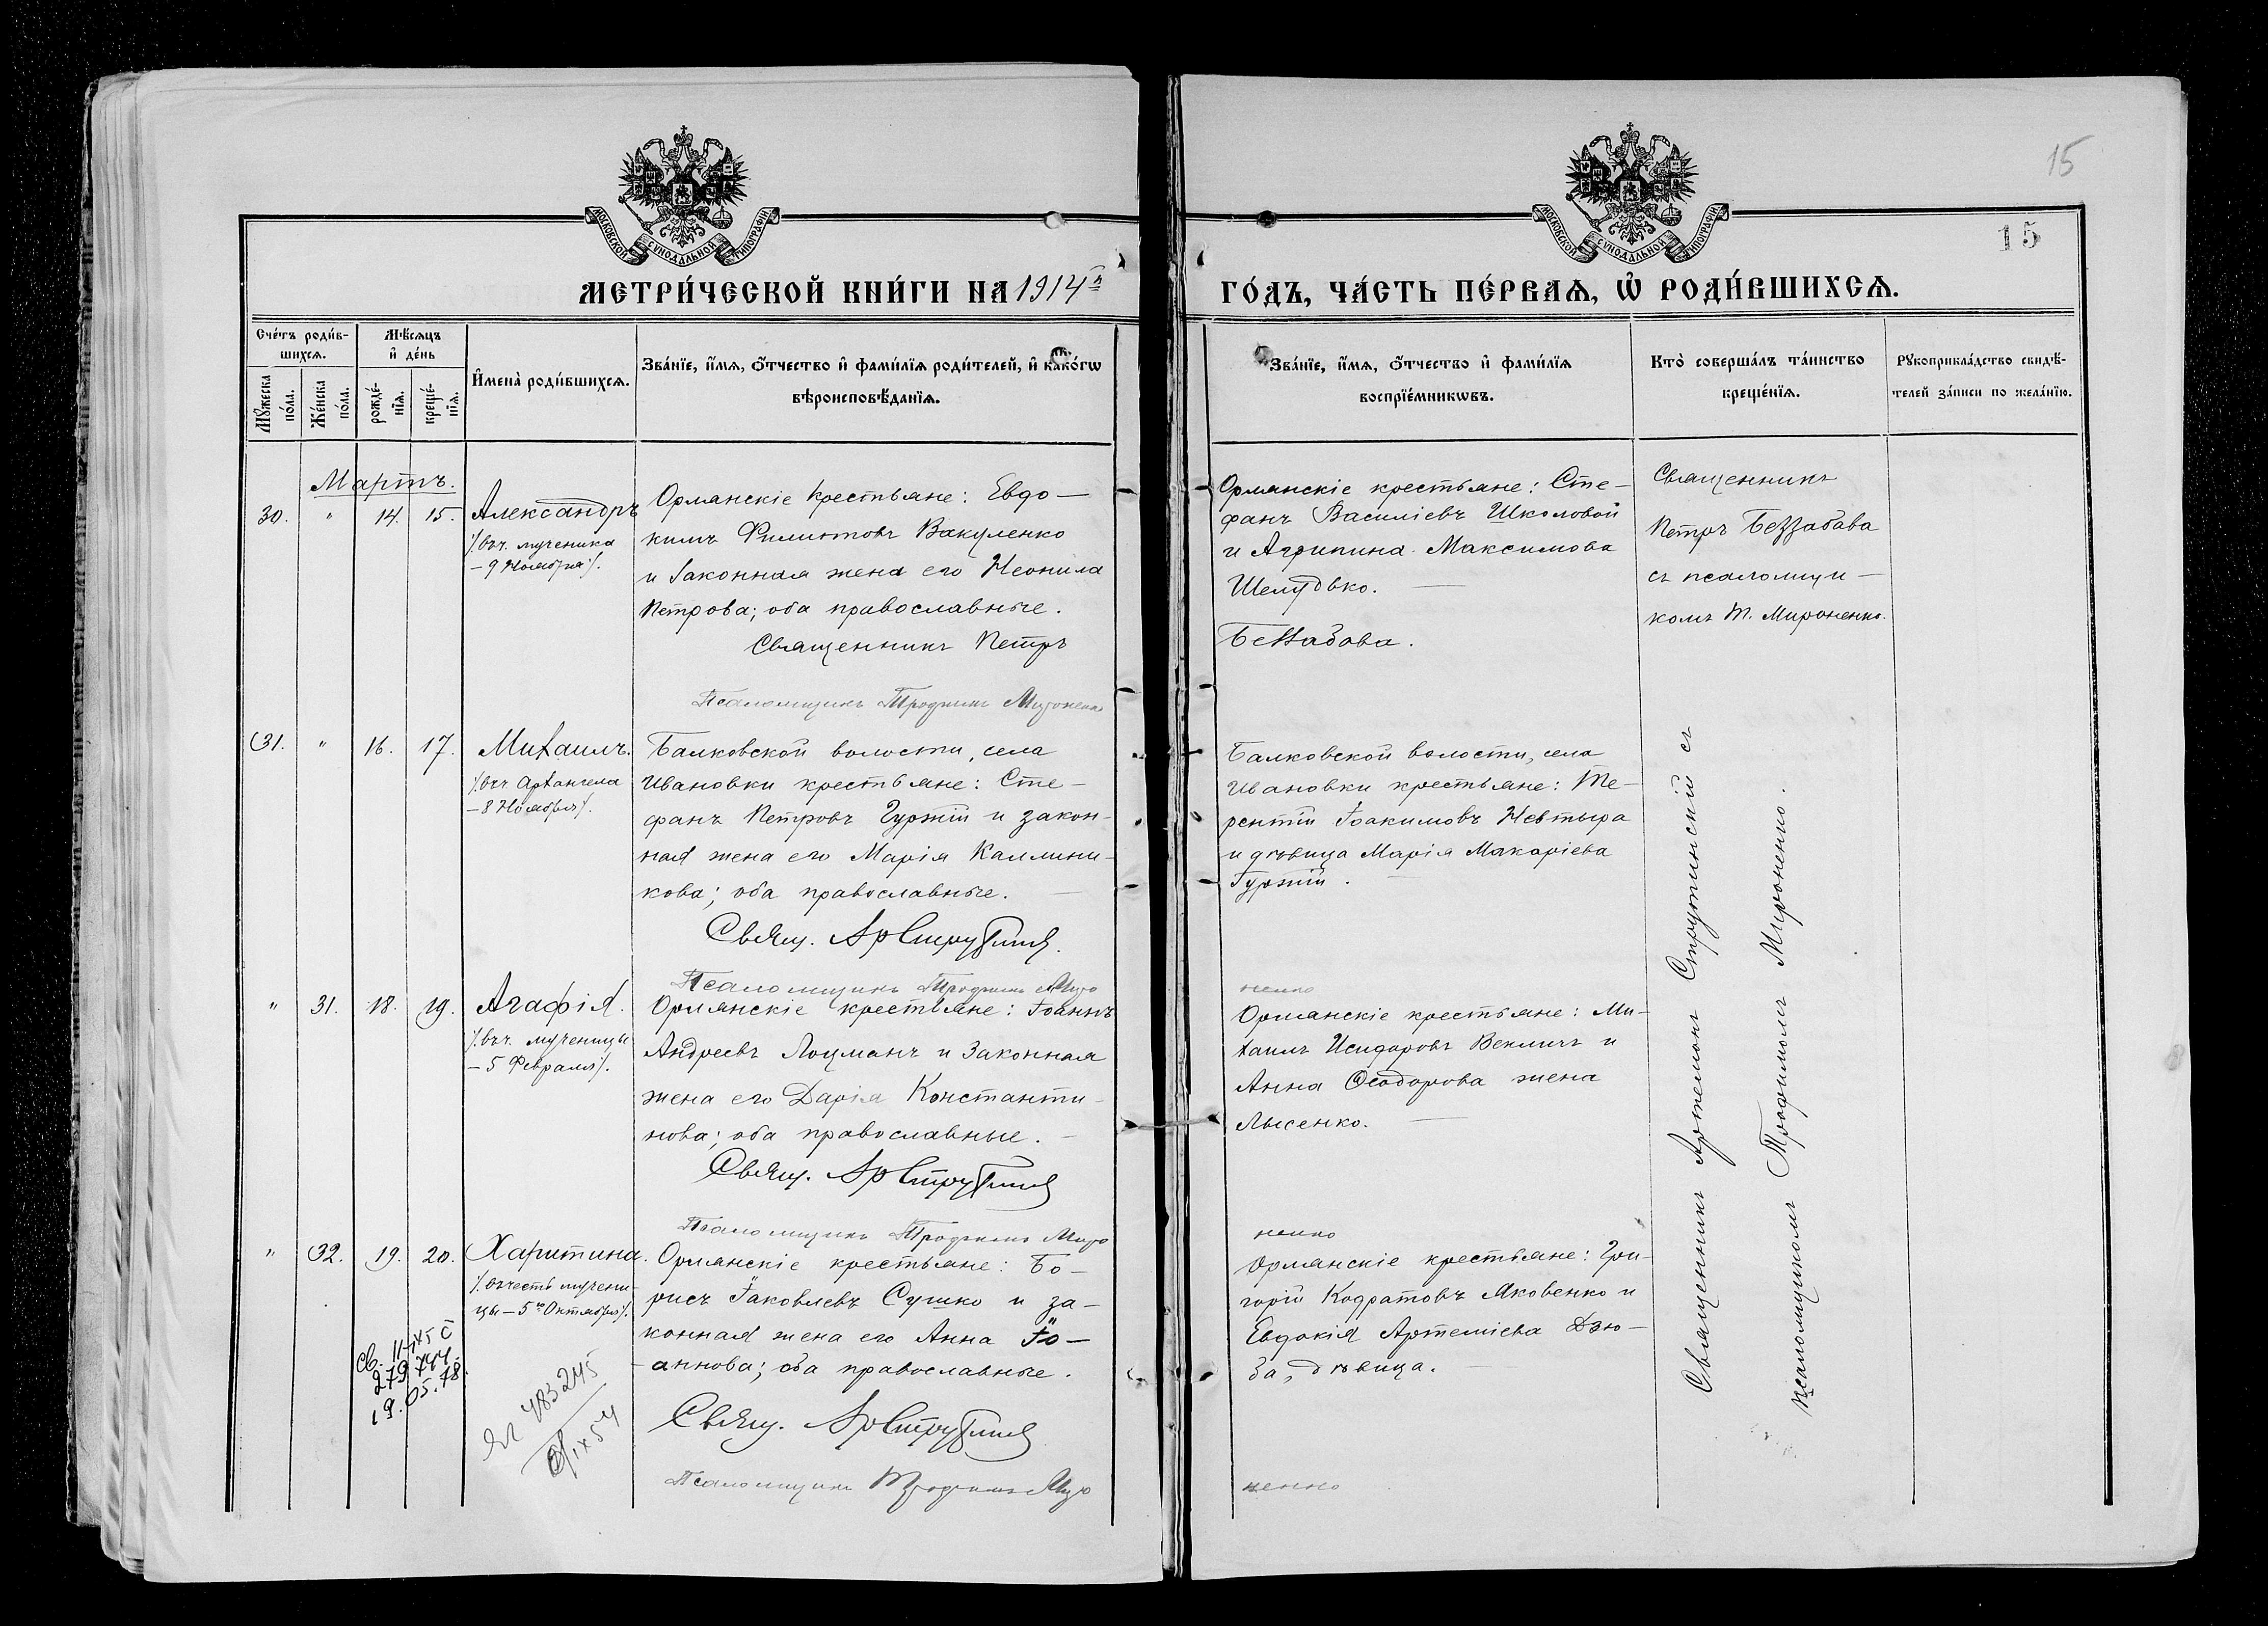 15
15
МОСКОВСКОЙ СѴНОДАЛЬНОЙ ТИПОГРАФІИ
МОСКОВСКОЙ СѴНОДАЛЬНОЙ ТИПОГРАФІИ
МЕТРИ́ЧЕСКОЙ КНИ́ГИ НА 1914й
ГО́ДЪ, ЧА́СТЬ ПЕ́РВАѦ, Ѡ҆ РОДИ́ВШИХСѦ.
Сче́тъ роди́в-
шихсѧ.
Мꙋ́жеска
по́ла.
Же́нска
по́ла.
Мѣ́сѧцъ
и҆ де́нь
рожде́-
нїѧ.
креще́-
нїѧ.
И҆мена̀ роди́вшихсѧ.
Зва́нїе, и҆́мѧ, ѻ҆́тчество и҆ фами́лїѧ роди́телей, и҆ како́гѡ
вѣроисповѣ́данїѧ.
Зва́нїе, и҆́мѧ, ѻ҆́тчество и҆ фами́лїѧ
воспрїе́мникѡвъ.
Кто̀ соверша́лъ та́инство
креще́нїѧ.
Рꙋкоприкла́дство свидѣ́-
телей за́писи по жела́нїю.
Мартъ.
30. " 14. 15.
Александръ
/.въ ч. мученика
— 9 Ноября/.
Орлянскіе крестьяне: Евдо—
кимъ Филиповъ Вакуленко
и законная жена его Неонила
Петрова; оба православные.
Священникъ Петръ
Псаломщикъ Трофимъ Мироненко
Орлянскіе крестьяне: Сте—
фанъ Василіевъ Школовой
и Агрипина Максимова
Шелудько.
Беззабава.
Священникъ
Петръ Беззабава
съ псаломщи—
комъ Т. Мироненко.
31. " 16. 17.
Михаилъ.
/.въ ч Архангела
— 8 Ноября/.
Балковской волости, села
Ивановки крестьяне: Сте—
фанъ Петровъ Гуржій и закон-
ная жена его Марія Каллини-
кова; оба православные.
Свящ. Ар Струтинскій
Псаломщикъ Трофимъ Миро
Балковской волости, села
Ивановки крестьяне: Те—
рентій Іоакимовъ Невтыра
и дѣвица Марія Макаріева
Гуржій.
ненко
" 31. 18. 19.
Агафія.
/.въ ч. мученицы
— 5 Февраля/.
Орлянскіе крестьяне: Іоаннъ
Андреевъ Лоцманъ и законная
жена его Дарія Константи-
нова; оба православные.
Свящ. Ар Струтинскій
Псаломщикъ Трофимъ Миро
Орлянскіе крестьяне: Ми-
хаилъ Исидоровъ Великъ и
Анна Ѳеодорова жена
Лысенко.
ненко
" 32. 19. 20.
Харитина.
/.въ честь мучени-
цы — 5го Октября/.
Орлянскіе крестьяне: Бо—
рисъ Іаковлевъ Сушко и за—
конная жена его Анна Іо—
аннова; оба православные.
Свящ. Ар Струтинскій
Псаломщикъ Трофимъ Миро
Орлянскіе крестьяне: Гри-
горій Кодратовъ Яковенко и
Евдокія Артеміева Дзю—
ба, дѣвица.
ненко
Священникъ Артемонъ Струтинскій съ
псаломщикомъ Трофимомъ Мироненко.
279744
19.05.78.
483245